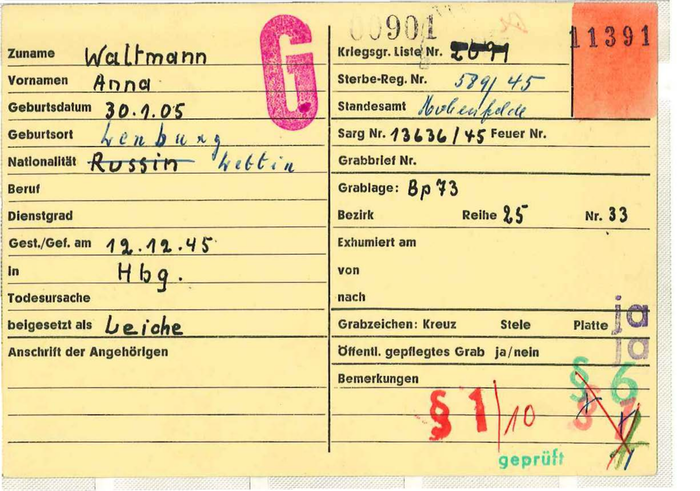 G
00901
11391
Zuname Waltmann
Vornamen Anna
Geburtsdatum 30.1.05
Geburtsort Lenburg
Nationalität Russin Lettin
Beruf
Dienstgrad
Gest./Gef. am 12.12.45
In Hbg.
Todesursache
beigesetzt als Leiche
Anschrift der Angehörigen
Kriegsgr. Liste Nr.
Sterbe-Reg. Nr. 589/45
Standesamt Hohenfelde
Sarg Nr. 13636/45 Feuer Nr.
Grabbrief Nr.
Grablage: Bp73
Bezirk Reihe 25 Nr. 33
Exhumiert am
von
nach
Grabzeichen: Kreuz Stele Platte ja
Öffentl. gepflegtes Grab ja/nein ja
Bemerkungen
§ 6
§ 1/10 §
geprüft